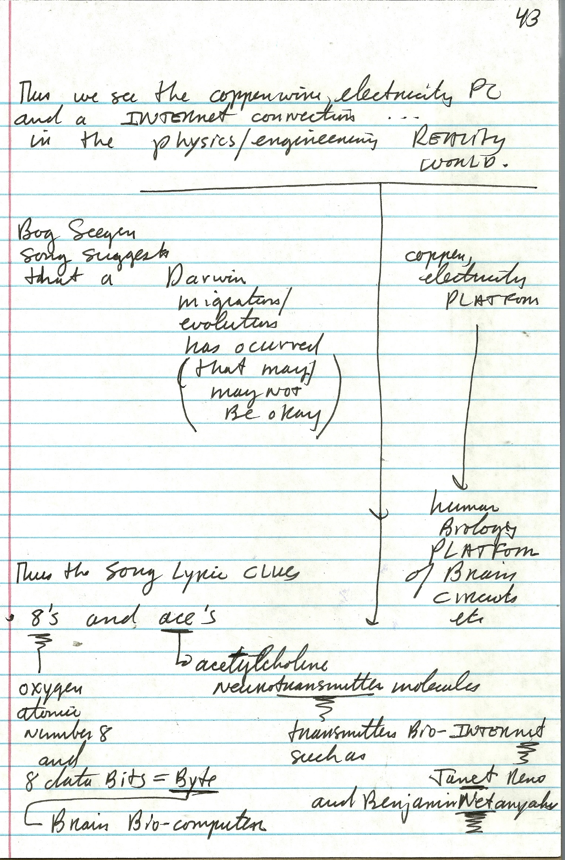 43
Thus we see the copperwire, electricity PC
and a INTERNET connection ...
in the physics/engineering REALITY
WORLD.
Bog Seegen
song suggests
that a Darwin
migration/
evolution
has ocurred
(that may/
may NOT
Be okay)
copper,
electricity
PLATFOM
human
Biology
PLATFOM
of Brain
circuits
etc
Thus the Song Lyric CLUES
• 8's and ace's
acetylcholine
Neurotransmitter molecules
oxygen
atomic
Number 8
and
8 data Bits = Byte
Brain Bio-computer
transmitters Bio-INTERNET
such as
Janet Reno
and Benjamin Netanyahu